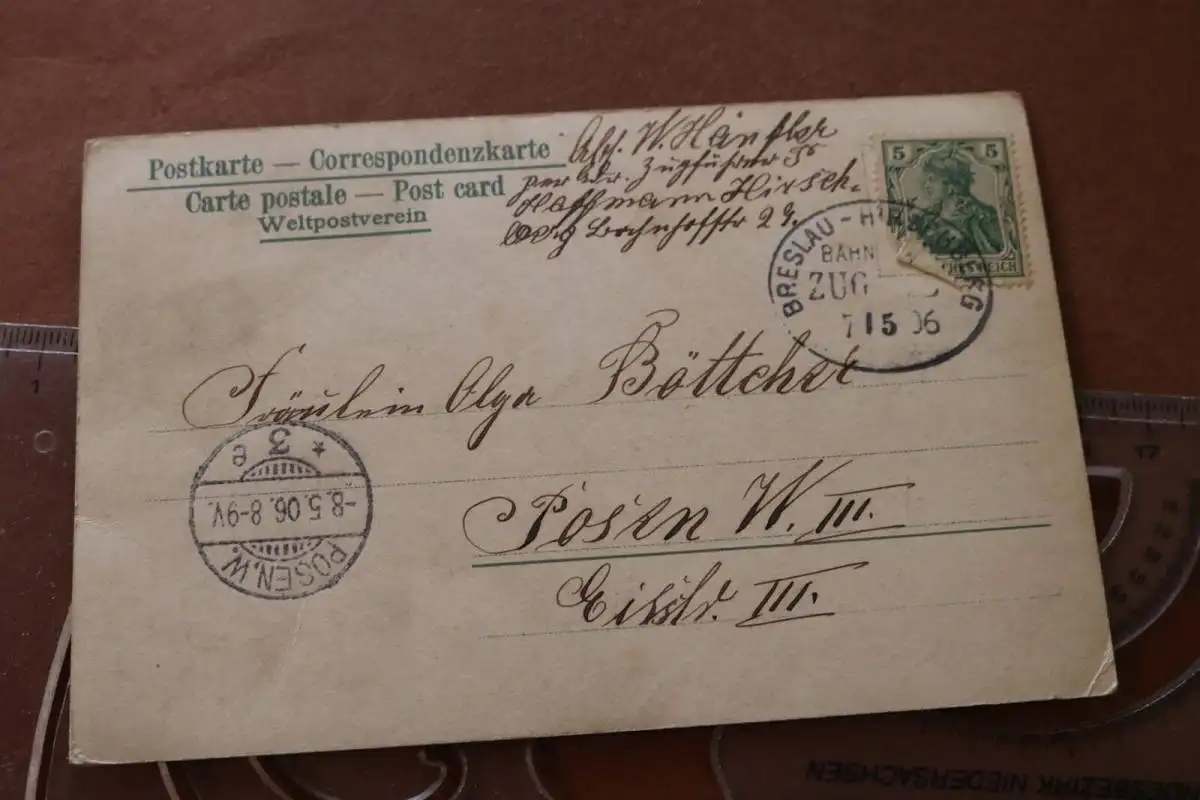 Postkarte — Correspondenzkarte
Carte postale — Post card
Weltpostverein
Abs. W. Hänfler
per Adr. Zugführer
Hoffmann Hirsch-
Bahnhofstr 29.
5 5
REICH
BRESLAU - HIRSCHBERG
BAHN
ZUG
7 5 06
Fräulein Olga Böttcher
Posen W. III.
III.
* 3 e
-8.5.06.8-9V.
POSEN.W.
1
17
BEZIRK NIEDERSACHSEN